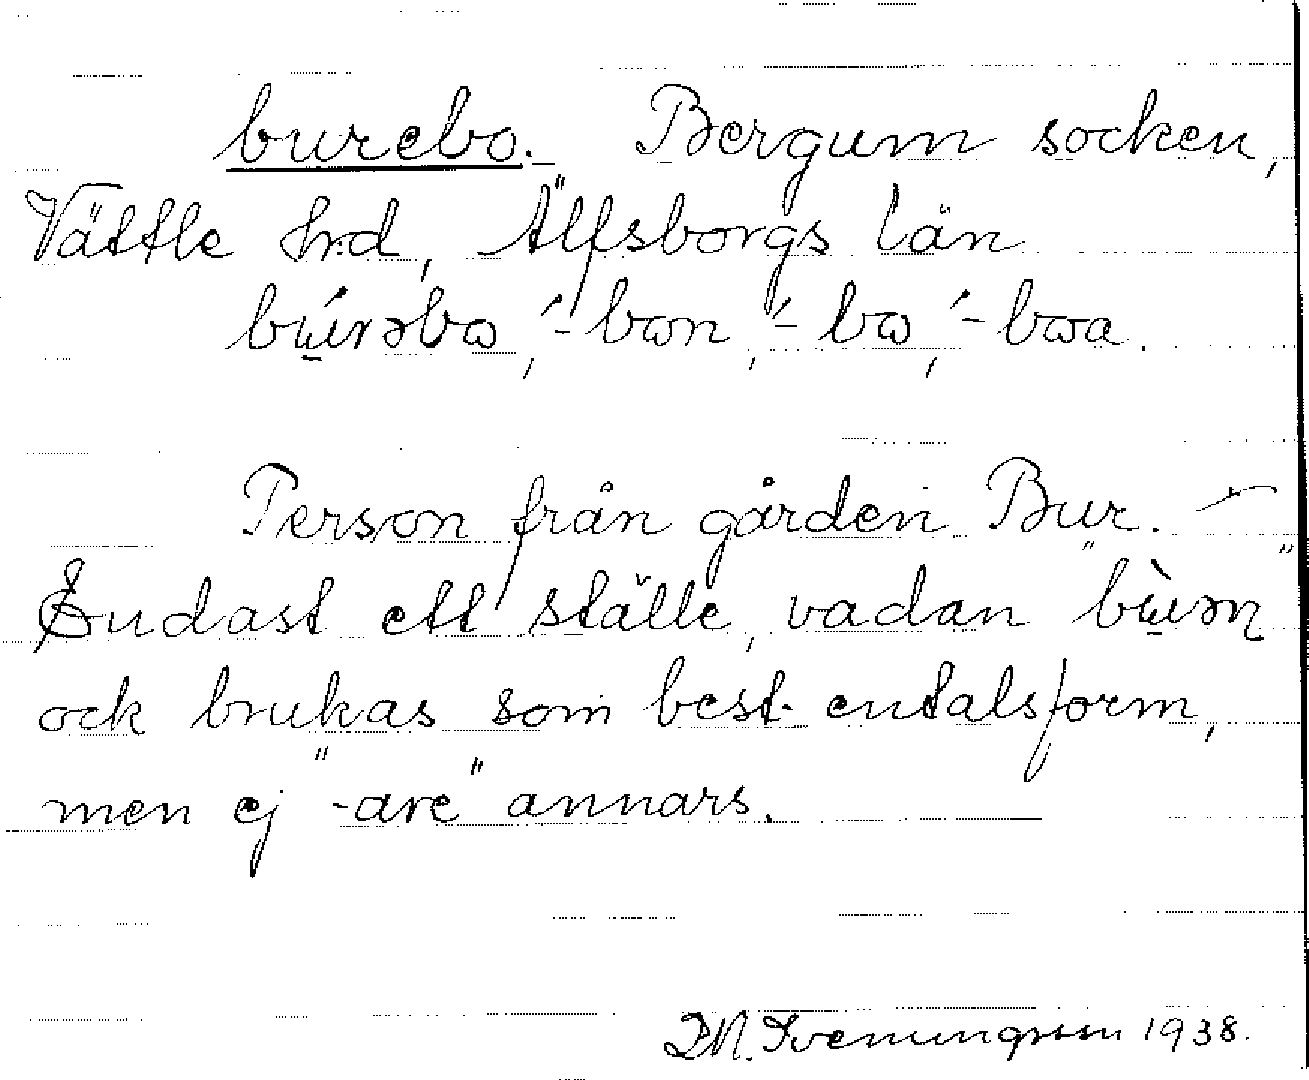 burebo. Bergum socken,
Vättle hrd, Älfsborgs län
bú̱rəbω, ́-bωn, ́-bω, ́-bωa.
Person från gården Bur. —
Endast ett ställe, vadan "bù̱rən"
ock brukas som best. entalsform,
men ej "-are" annars.
D.N. Svenungsson 1938.